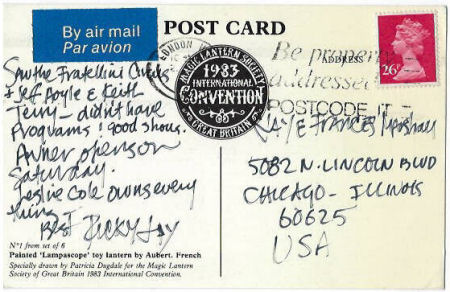 By air mail
Par avion
POST CARD
LONDON
MAGIC LANTERN SOCIETY
1983
INTERNATIONAL
CONVENTION
GREAT BRITAIN
Be properly
addressed
POSTCODE IT
ADDRESS
26
Saw the Fratellini Circus
& Jef & Keith
Terry - didn't have
Programs! good show.
opens on
Saturday.
Leslie Cole owns every
thing
Best Ricky Jay
JAY & Frances Marshall
5082 N. LINCOLN BLVD
CHICAGO - ILLINOIS
60625
USA
Nº1 from set of 6
Painted 'Lampascope' toy lantern by Aubert. French
Specially drawn by Patricia Dugdale for the Magic Lantern
Society of Great Britain 1983 International Convention.